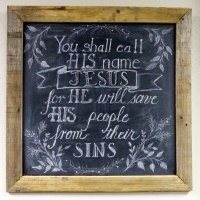 You shall call
HIS name
JESUS
for HE will save
HIS people
from their
SINS